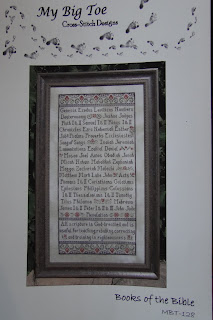 My Big Toe
Cross-Stitch Designs
Genesis Exodus Leviticus Numbers
Deuteronomy Joshua Judges
Ruth I & II Samuel I & II Kings I & II
Chronicles Ezra Nehemiah Esther
Job Psalms Proverbs Ecclesiastes
Song of Songs Isaiah Jeremiah
Lamentations Ezekiel Daniel
Hosea Joel Amos Obadiah Jonah
Micah Nahum Habakkuk Zephaniah
Haggai Zechariah Malachi
Matthew Mark Luke John Acts
Romans I & II Corinthians Galatians
Ephesians Philippians Colossians
I & II Thessalonians I & II Timothy
Titus Philemon Hebrews
James I & II Peter I & II & III John Jude
Revelation
All scripture is God-breathed and is
useful for teaching rebuking correcting
and training in righteousness
Books of the Bible
MBT-128